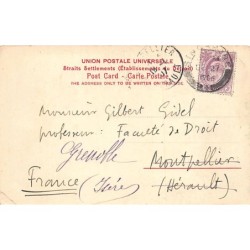 UNION POSTALE UNIVERSELLE
Straits Settlements (Établissements du
Post Card - Carte Postale
THE ADDRESS ONLY TO BE WRITTEN ON THIS SIDE
Monsieur Gilbert Gidel
professeur : Faculté de Droit
Grenoble
Montpellier
France (Isère) (Hérault)